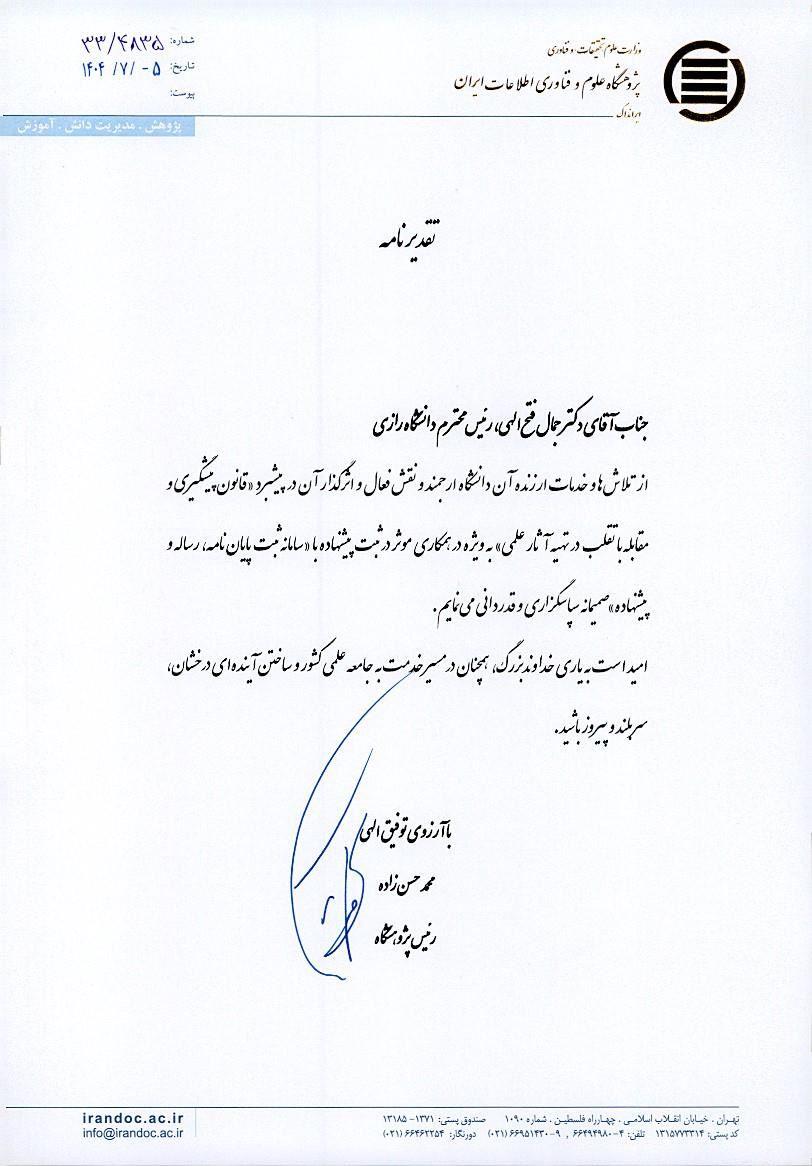 وزارت علوم، تحقیقات و فناوری
پژوهشگاه علوم و فناوری اطلاعات ایران
ایرانداک
شماره: ۳۳/۴۸۳۵
تاریخ: ۱۴۰۴/۷/-۵
پیوست:
پژوهش . مدیریت دانش . آموزش
تقدیرنامه
جناب آقای دکتر جمال فتح الهی، رئیس محترم دانشگاه رازی
از تلاش ها و خدمات ارزنده آن دانشگاه ارجمند و نقش فعال و اثرگذار آن در پیشبرد «قانون پیشگیری و
مقابله با تقلب در تهیه آثار علمی» به ویژه در همکاری موثر در ثبت پیشنهاده با «سامانه ثبت پایان نامه، رساله و
پیشنهاده» صمیمانه سپاسگزاری و قدردانی می نمایم.
امید است به یاری خداوند بزرگ، همچنان در مسیر خدمت به جامعه علمی کشور و ساختن آینده ای درخشان،
سربلند و پیروز باشید.
با آرزوی توفیق الهی
محمد حسن زاده
رئیس پژوهشگاه
تهـران . خیابان انقلاب اسلامـی . چهـارراه فلسطیـن . شماره ۱۰۹۰ صندوق پستی: ۱۳۷۱-۱۳۱۸۵
کد پستی: ۱۳۱۵۷۷۳۳۱۴ تلفن: ۴-۶۶۴۹۴۹۸۰ , ۹-۶۶۹۵۱۴۳۰ (۰۲۱) دورنگار: ۶۶۴۶۲۲۵۴ (۰۲۱)
irandoc.ac.ir
info@irandoc.ac.ir